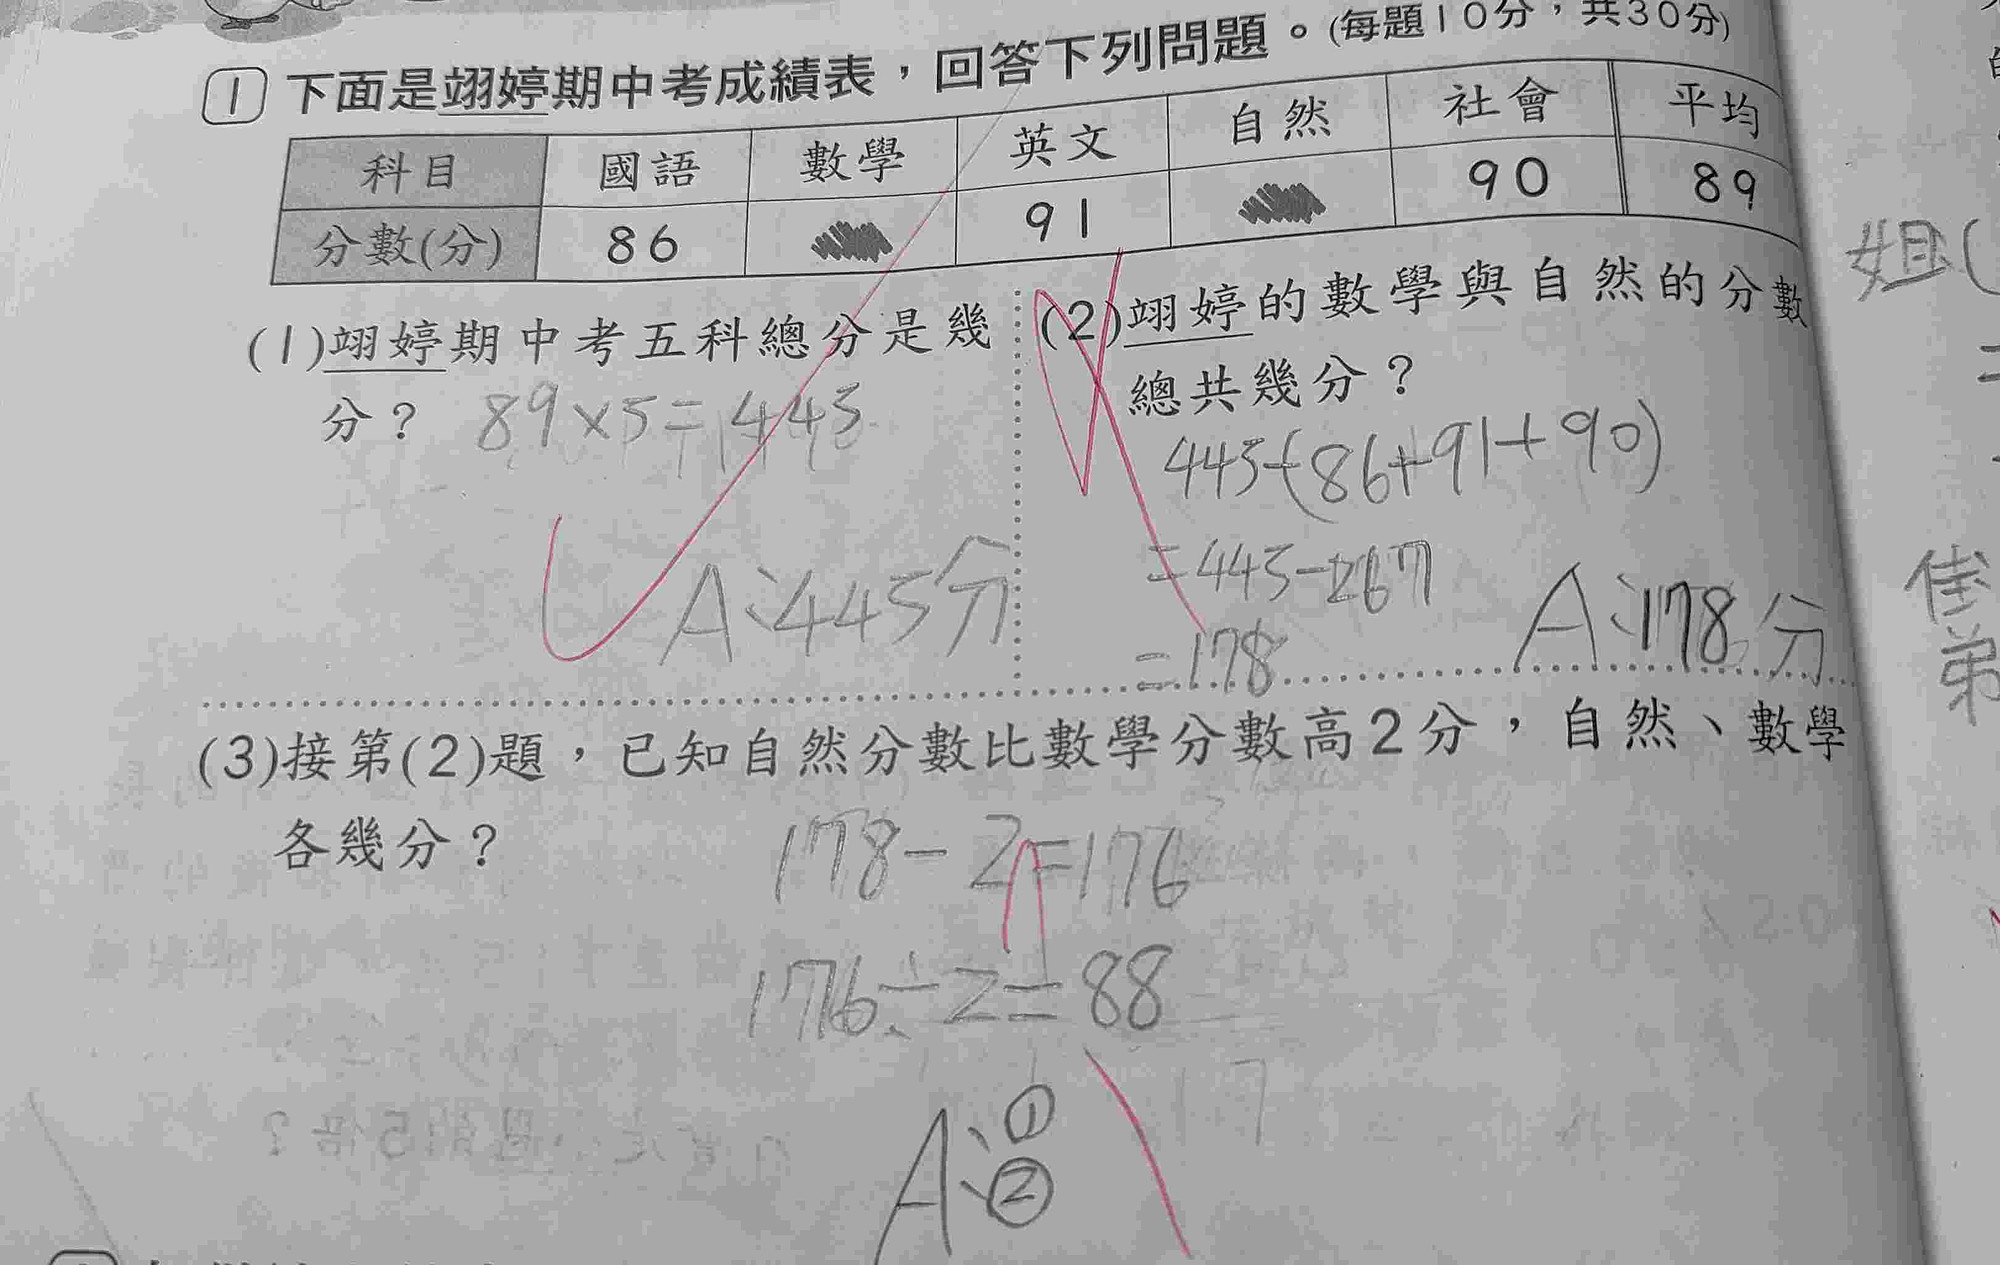 1 下面是翊婷期中考成績表，回答下列問題。(每題10分，共30分)
科目 國語 數學 英文 自然 社會 平均
分數(分) 86 91 90 89
(1)翊婷期中考五科總分是幾
分？ 89×5=445
A:445分
(2)翊婷的數學與自然的分數
總共幾分？
445-(86+91+90)
=445-267
=178
A:178分
(3)接第(2)題，已知自然分數比數學分數高2分，自然、數學
各幾分？
178-2=176
176÷2=88
A:①
②
姐(